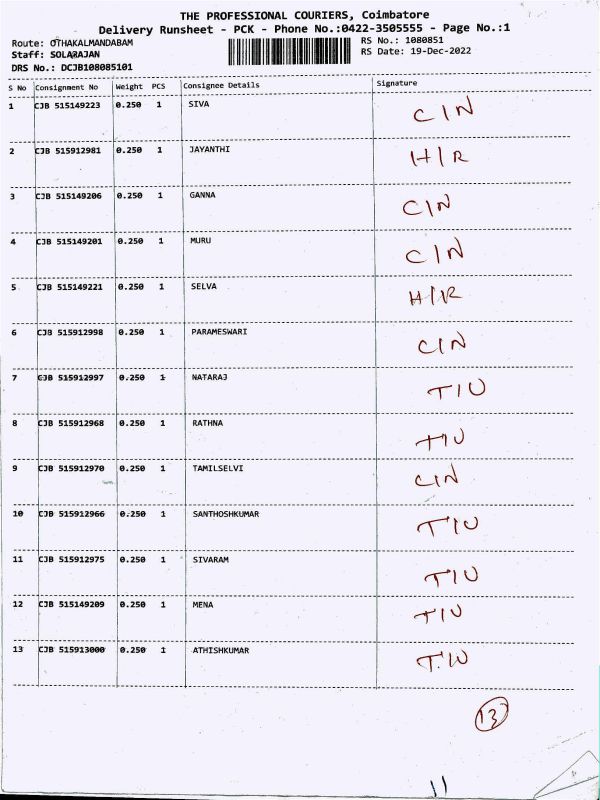 THE PROFESSIONAL COURIERS, Coimbatore
Delivery Runsheet - PCK - Phone No.:0422-3505555 - Page No.:1
Route: OTHAKALMANDABAM RS No.: 1080851
Staff: SOLARAJAN RS Date: 19-Dec-2022
DRS No.: DCJB108085101
S No Consignment No Weight PCS Consignee Details Signature
1 CJB 515149223 0.250 1 SIVA C/N
2 CJB 515912981 0.250 1 JAYANTHI H/R
3 CJB 515149206 0.250 1 GANNA C/N
4 CJB 515149201 0.250 1 MURU C/N
5 CJB 515149221 0.250 1 SELVA H/R
6 CJB 515912998 0.250 1 PARAMESWARI C/N
7 CJB 515912997 0.250 1 NATARAJ T/U
8 CJB 515912968 0.250 1 RATHNA T/U
9 CJB 515912970 0.250 1 TAMILSELVI C/N
10 CJB 515912966 0.250 1 SANTHOSHKUMAR T/U
11 CJB 515912975 0.250 1 SIVARAM T/U
12 CJB 515149209 0.250 1 MENA T/U
13 CJB 515913000 0.250 1 ATHISHKUMAR T/U
13